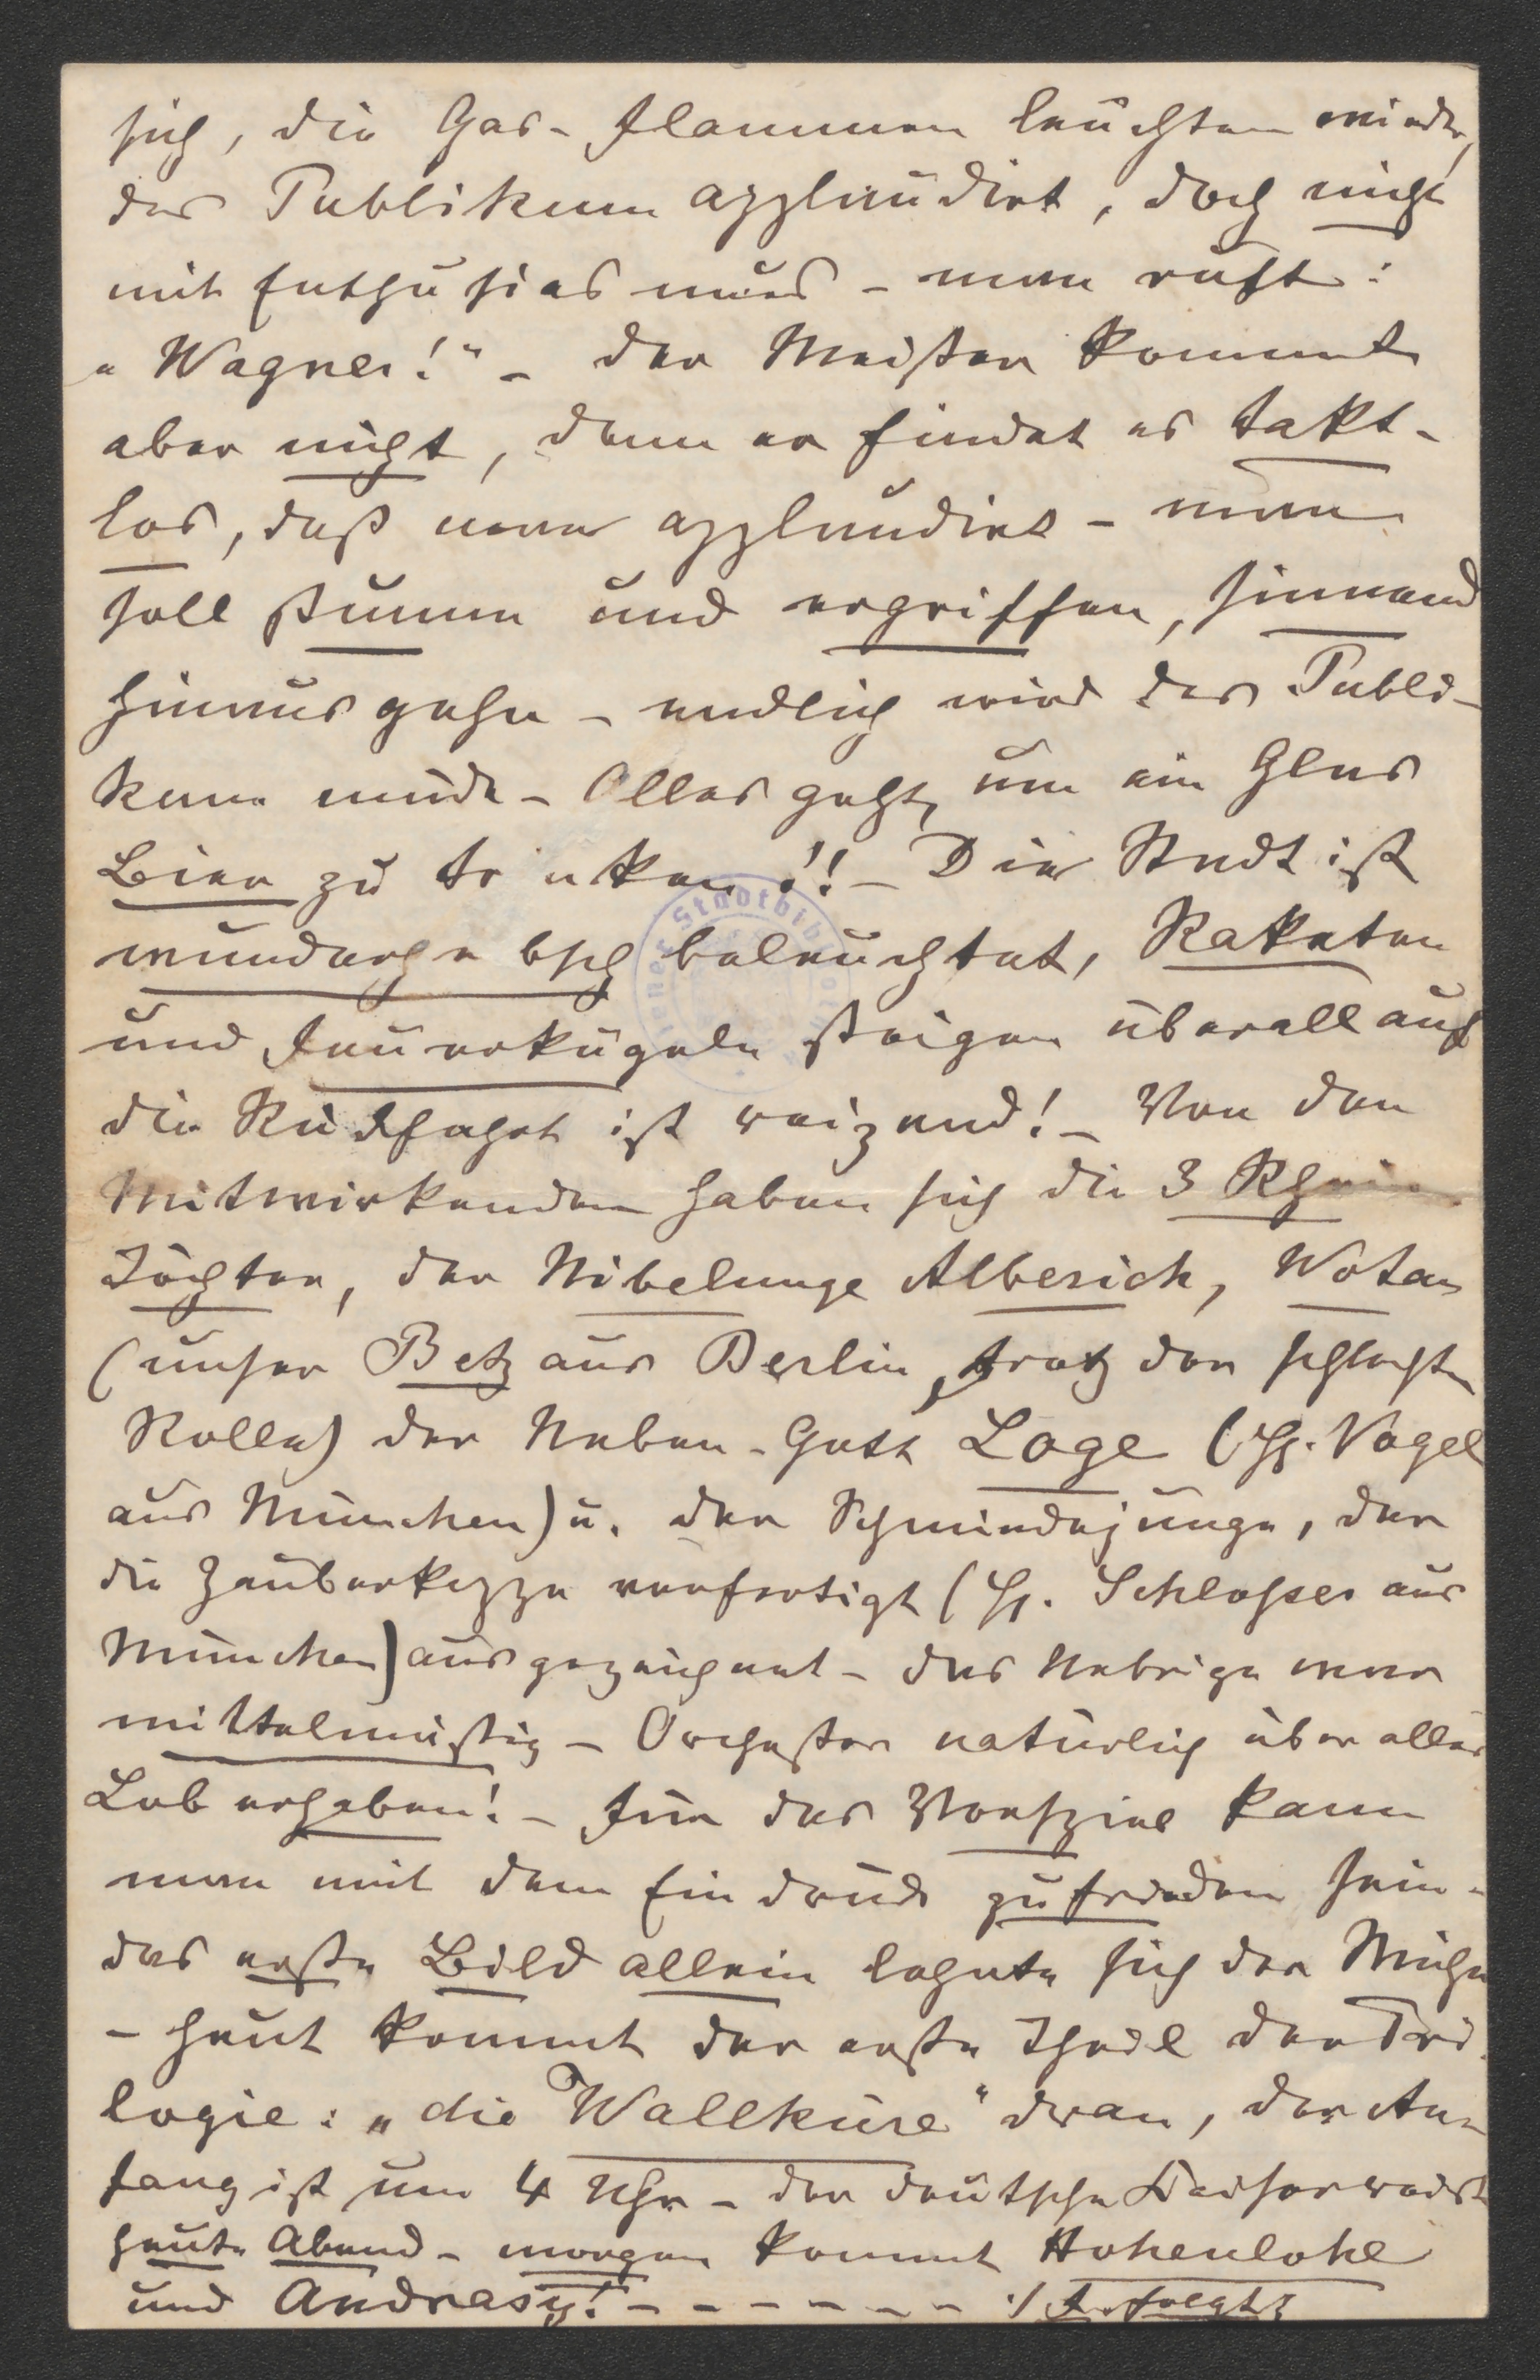 sich, die Gas-Flammen leuchten wieder,
das Publikum applaudirt, doch nicht
mit Enthusiasmus – man ruft:
„Wagner!“ – der Meister kommt
aber nicht, denn er findet es takt-
los, daß man applaudirt – man
soll stumm und ergriffen, sinnend
hinausgehn – endlich wird das Publi-
kum müde – Alles geht, um ein Glas
Bier zu trinken!! – Die Stadt ist
wunderhübsch beleuchtet, Raketen
und Feuerkugeln steigen überall auf
die Rückfahrt ist reizend! – Von den
Mitwirkenden haben sich die 3 Rhein
Töchter, der Nibelunge Alberich, Wotan
(unser Betz aus Berlin, trotz der schlechten
Rolle) der Neben-Gott Loge (H. Vogel
aus München) u. der Schmiedejunge, der
die Zauberkappe verfertigt (H. Schlosser aus
München) ausgezeichnet – das Uebrige war
mittelmäßig – Orchester natürlich über alles
Lob erhaben! – Für das Vorspiel kann
man mit dem Eindruck zufrieden sein –
das erste Bild allein lohnte sich der Mühe
– heut kommt der erste Theil der Tri-
logie: „die Wallküre“ dran, der An-
fang ist um 4 Uhr – der deutsche Kaiser reist
heute Abend – morgen kommt Hohenlohe
und Andrasy! – – – – – –
Wiener Stadtbibliothek